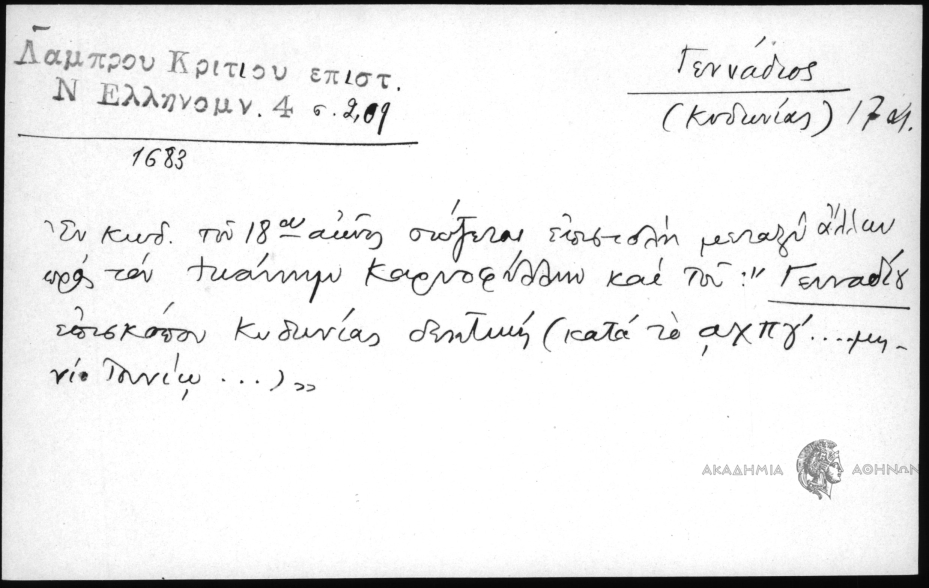 Λαμπρου Κριτιου επιστ.
Ν Ελληνομν. 4 σ. 2,09
1683
Γεννάδιος
(Κυδωνίας) 17 αι.
Ἐν κωδ. τοῦ 18ου αἰῶνος σώζεται ἐπιστολὴ μεταξὺ ἄλλων
πρὸς τὸν Ἰωάννην Καρυοφύλλην καὶ τοῦ: "Γενναδίου
ἐπισκόπου Κυδωνίας (κατὰ τὸ ͵αχπγ´ .... μη-
νὶ Ἰουνίῳ ...)»
ΑΚΑΔΗΜΙΑ ΑΘΗΝΩΝ